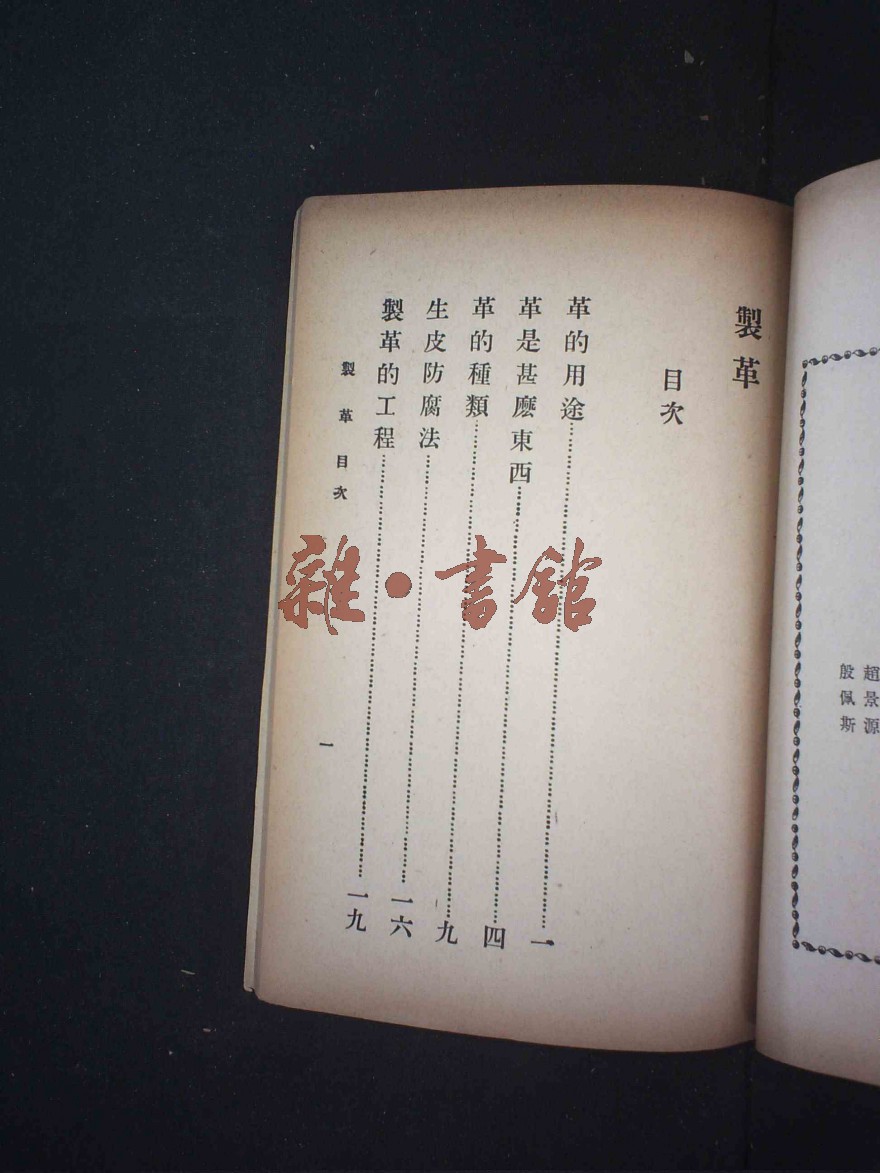 趙景源
殷佩斯
製革
目次
革的用途……一
革是甚麼東西……四
革的種類……九
生皮防腐法……一六
製革的工程……一九
製革目次
一
雜·書館